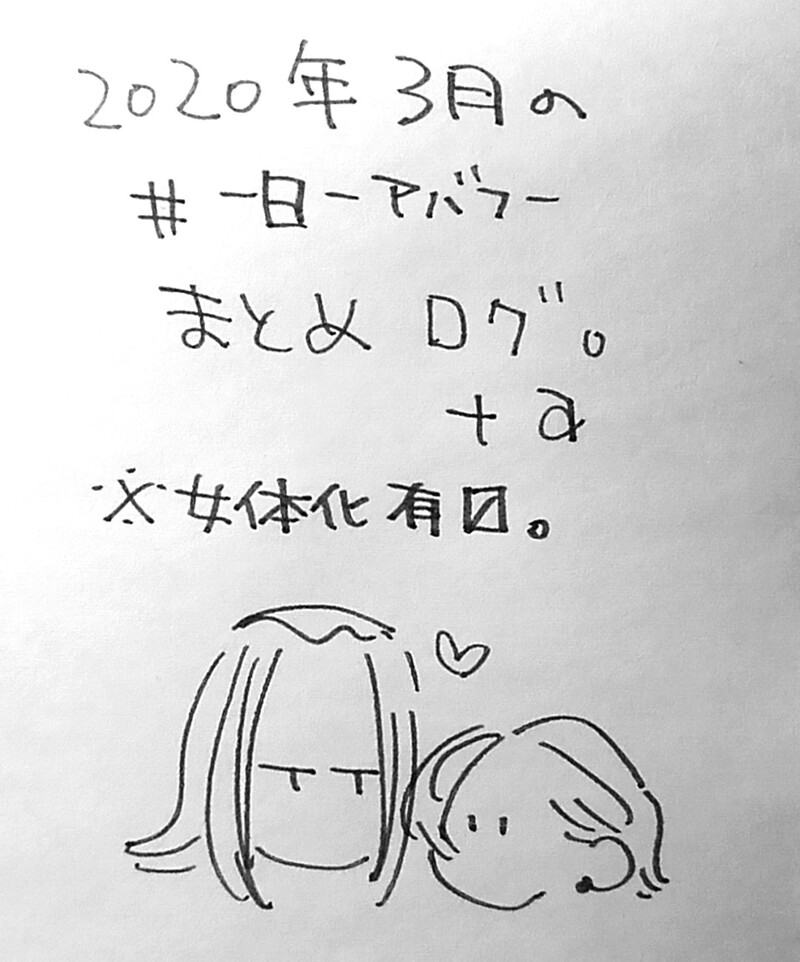 2020年3月の
#一日一アバフー
まとめ ログ。
+α
※女体化有〼。